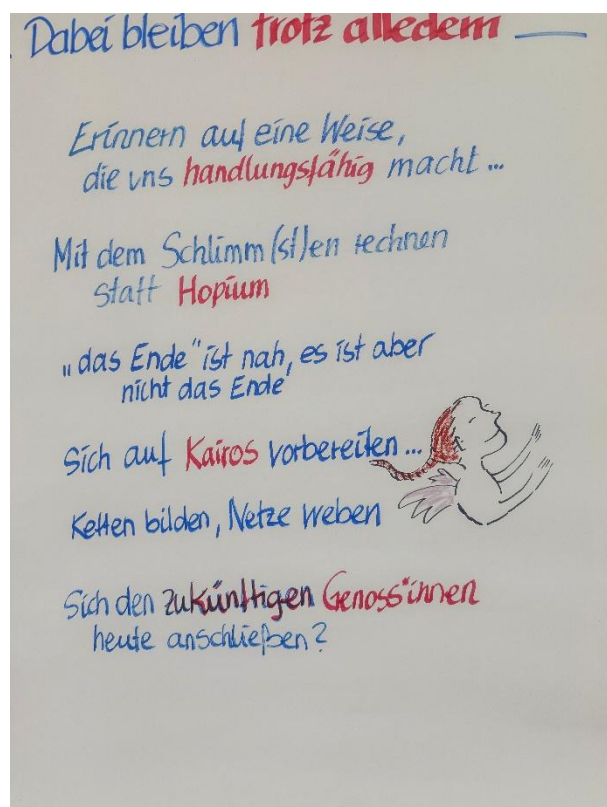 . Dabei bleiben trotz alledem
Erinnern auf eine Weise,
die uns handlungsfähig macht ...
Mit dem Schlimm(st)en rechnen
statt Hopium
„das Ende" ist nah, es ist aber
nicht das Ende
Sich auf Kairos vorbereiten ...
Ketten bilden, Netze weben
Sich den zukünftigen Genoss*innen
heute anschließen?